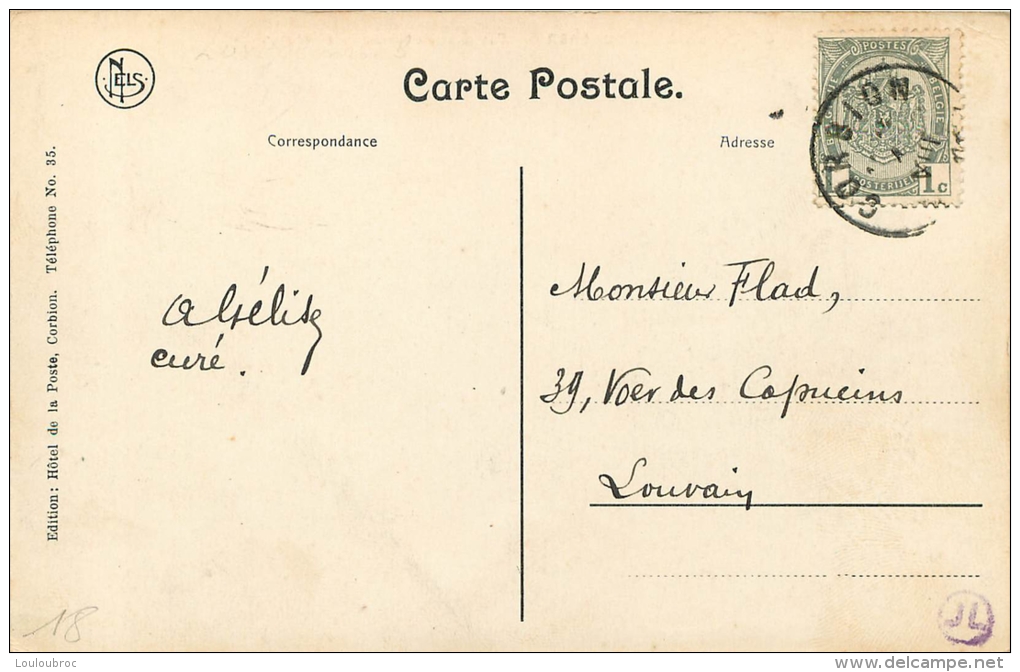 NELS
Carte Postale.
Correspondance
Adresse
POSTES
BELGIE
POSTERIJEN
1 c
CORBION
VIII
Edition: Hôtel de la Poste, Corbion. Téléphone No. 35.
curé.
Monsieur Flad,
39, Voer des Capucins
Louvain
18
JL
Louloubroc
delcampe.net